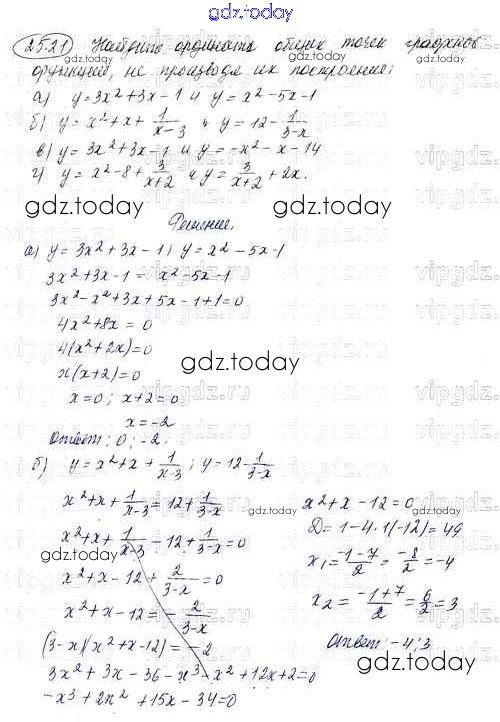 gdz.today
25.21 Найдите ординаты общих точек графиков
функций, не производя их построения:
а) y=3x²+3x-1 и y=x²-5x-1
б) y=x²+x+1/(x-3) и y=12-1/(3-x)
в) y=3x²+3x-1 и y=-x²-x-14
г) y=x²-8+3/(x+2) и y=3/(x+2)+2x.
gdz.today gdz.today
Решение.
а) y=3x²+3x-1; y=x²-5x-1
3x²+3x-1=x²-5x-1
3x²-x²+3x+5x-1+1=0
4x²+8x=0
4(x²+2x)=0
gdz.today
x(x+2)=0
x=0; x+2=0
x=-2
Ответ: 0; -2.
б) y=x²+x+1/(x-3); y=12-1/(3-x)
x²+x+1/(x-3)=12+1/(3-x)
x²+x+1/(x-3)-12+1/(3-x)=0
x²+x-12+2/(3-x)=0
x²+x-12=-2/(3-x)
(3-x)(x²+x-12)=-2
3x²+3x-36-x³-x²+12x+2=0
-x³+2x²+15x-34=0
x²+x-12=0
D=1-4·1(-12)=49
x₁=(-1-7)/2=-8/2=-4
x₂=(-1+7)/2=6/2=3
Ответ: -4; 3
gdz.today
gdz.today
gdz.today
vipgdz.ru